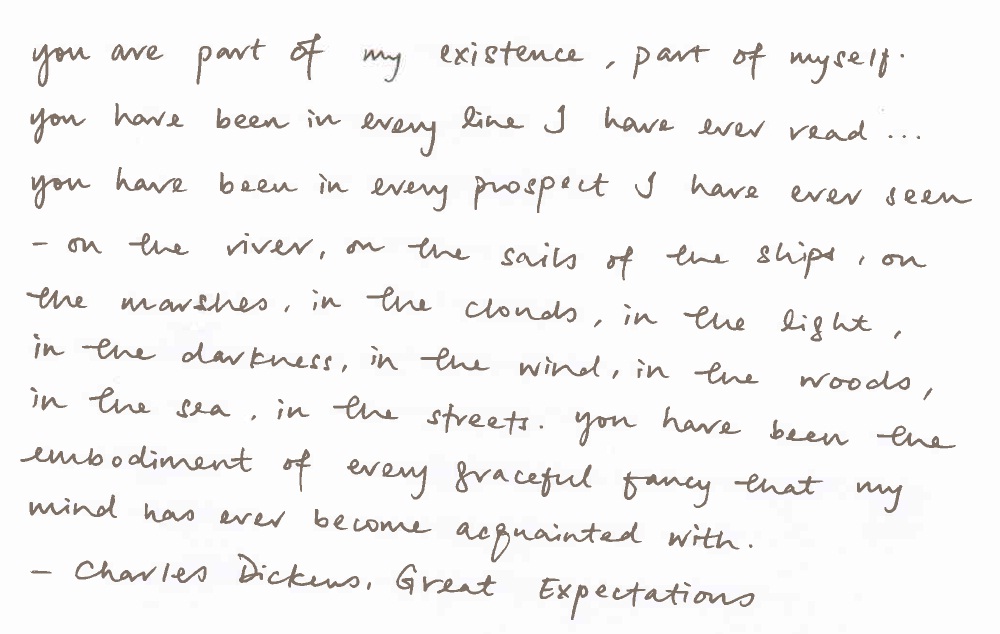 you are part of my existence, part of myself.
you have been in every line I have ever read ...
you have been in every prospect I have ever seen
- on the river, on the sails of the ships, on
the marshes, in the clouds, in the light,
in the darkness, in the wind, in the woods,
in the sea, in the streets. you have been the
embodiment of every graceful fancy that my
mind has ever become acquainted with.
- Charles Dickens, Great Expectations